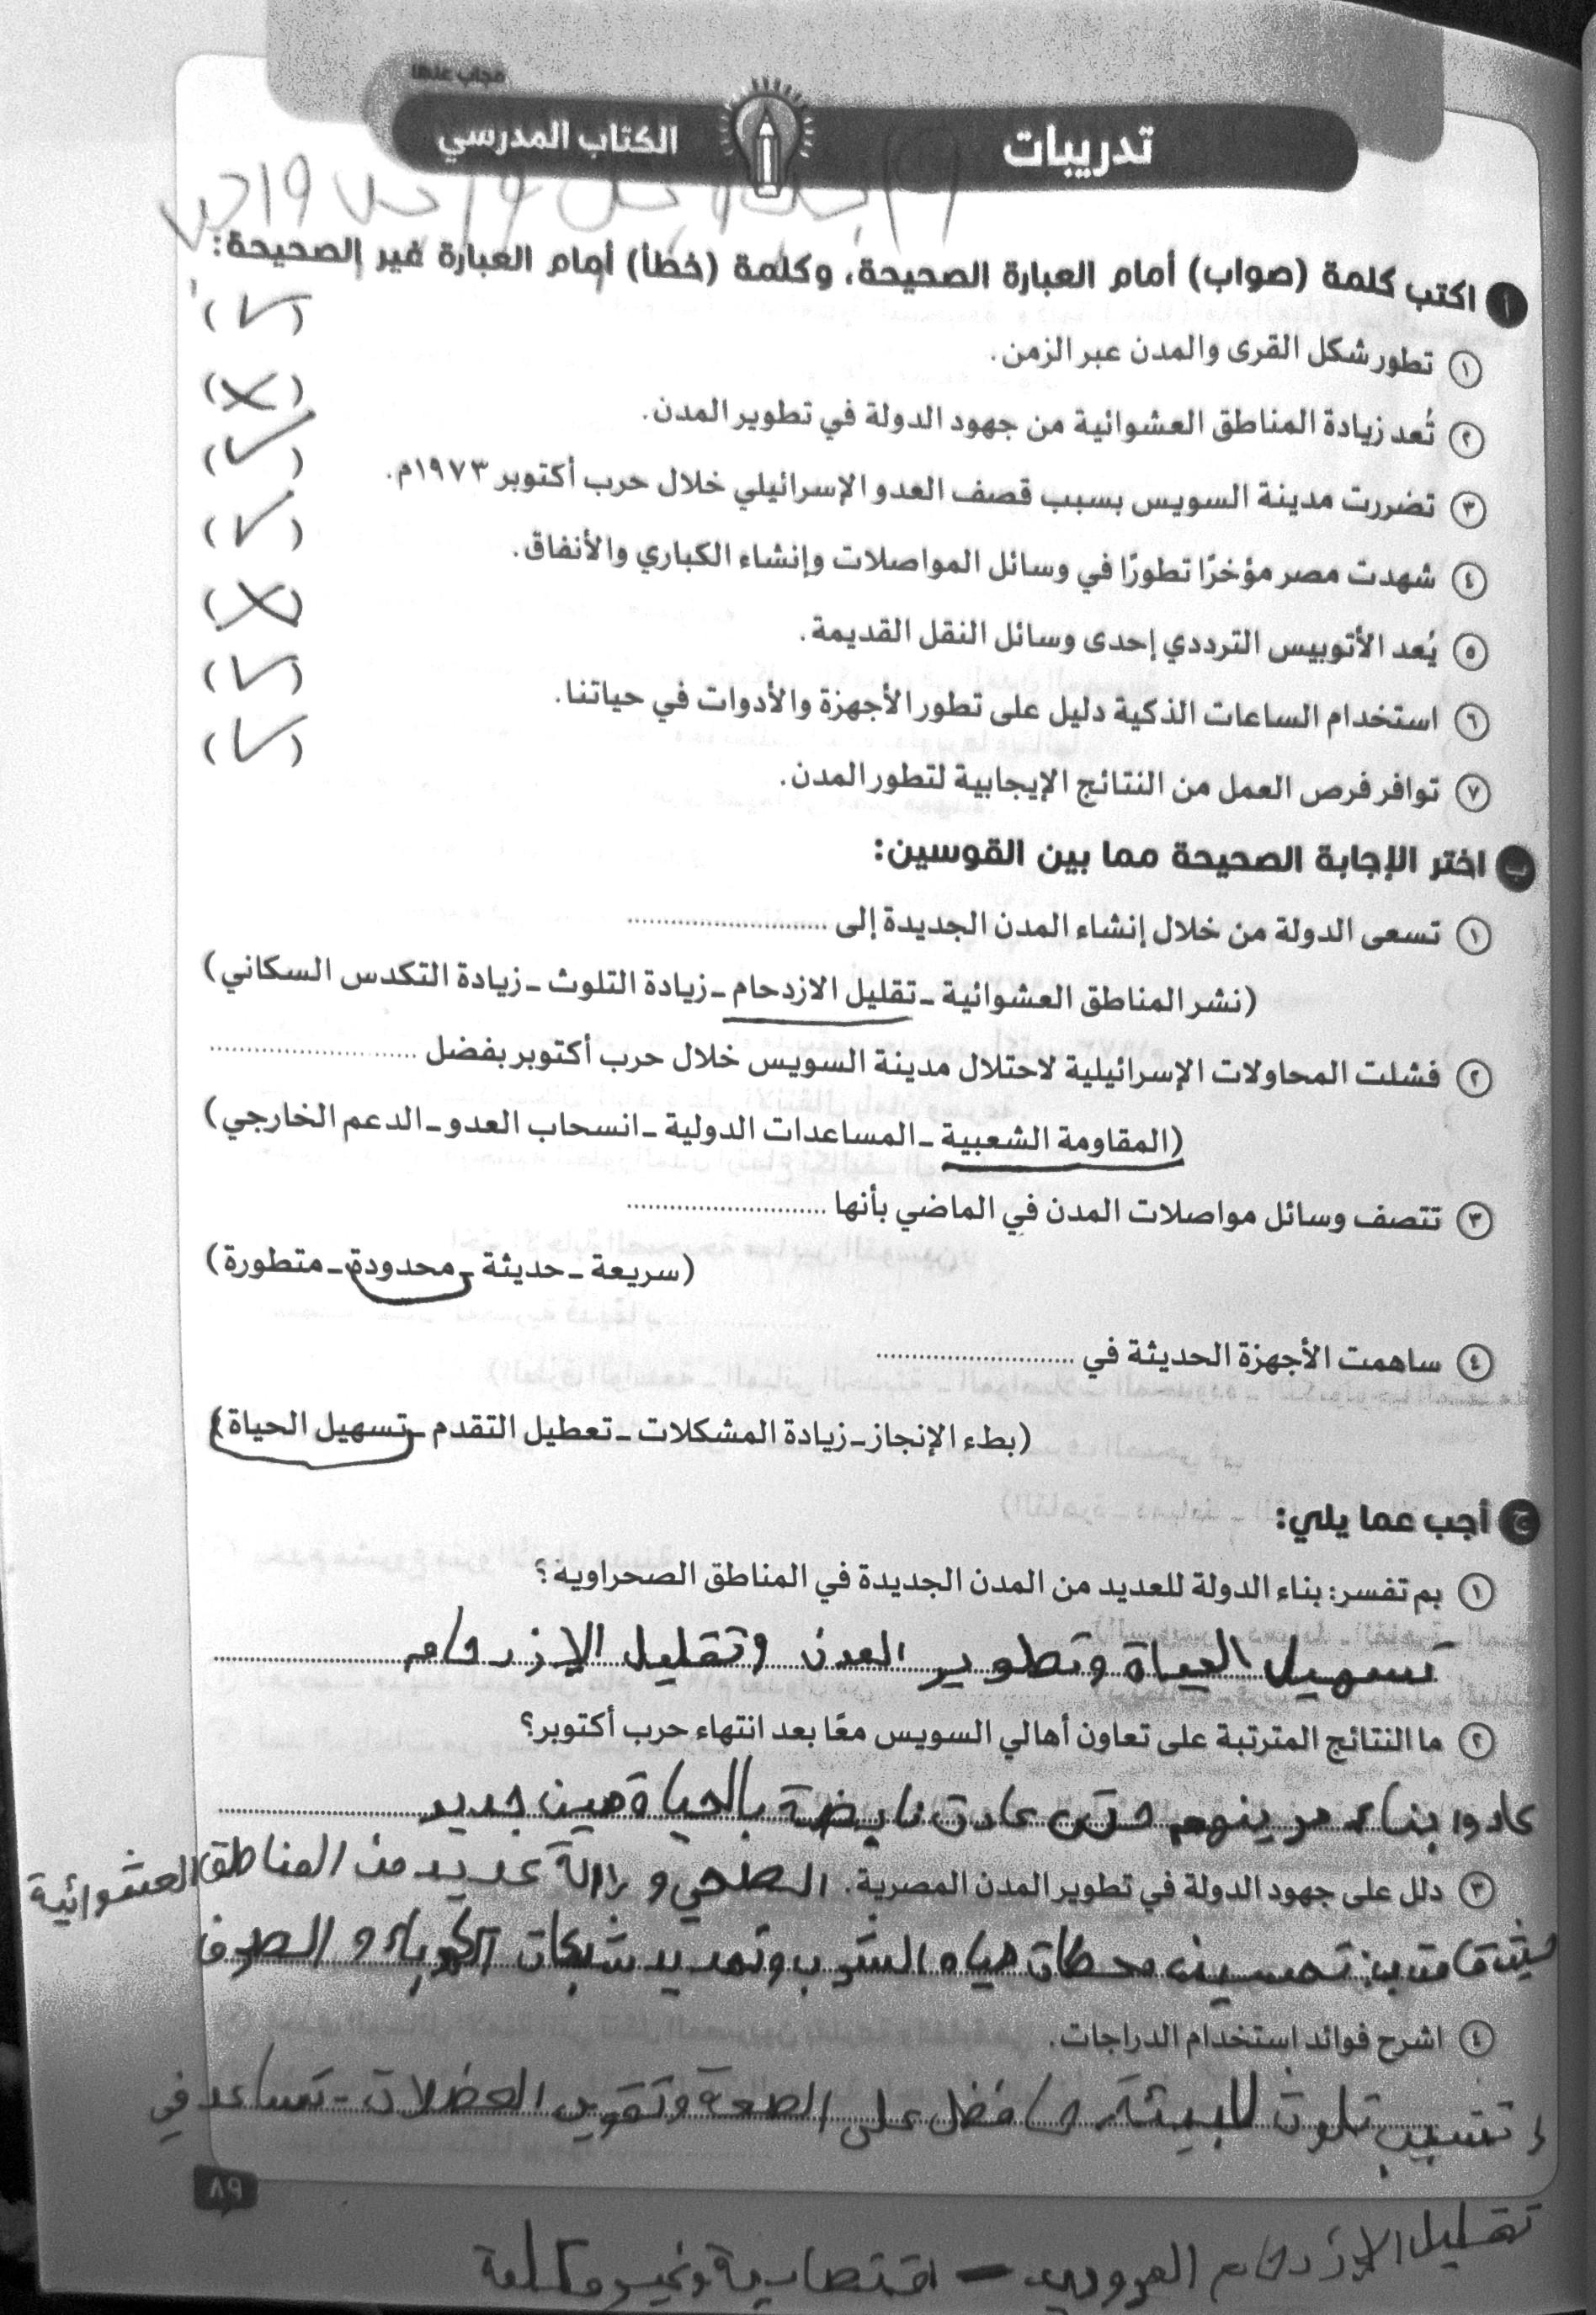 مجاب عنها
تدريبات
الكتاب المدرسي
أ اكتب كلمة (صواب) أمام العبارة الصحيحة، وكلمة (خطأ) أمام العبارة غير الصحيحة:
١ تطور شكل القرى والمدن عبر الزمن. (✓)
٢ تُعد زيادة المناطق العشوائية من جهود الدولة في تطوير المدن. (✗)
٣ تضررت مدينة السويس بسبب قصف العدو الإسرائيلي خلال حرب أكتوبر ١٩٧٣م. (✓)
٤ شهدت مصر مؤخرًا تطورًا في وسائل المواصلات وإنشاء الكباري والأنفاق. (✓)
٥ يُعد الأتوبيس الترددي إحدى وسائل النقل القديمة. (✗)
٦ استخدام الساعات الذكية دليل على تطور الأجهزة والأدوات في حياتنا. (✓)
٧ توافر فرص العمل من النتائج الإيجابية لتطور المدن. (✓)
ب اختر الإجابة الصحيحة مما بين القوسين:
١ تسعى الدولة من خلال إنشاء المدن الجديدة إلى ............................
(نشر المناطق العشوائية - تقليل الازدحام - زيادة التلوث - زيادة التكدس السكاني)
٢ فشلت المحاولات الإسرائيلية لاحتلال مدينة السويس خلال حرب أكتوبر بفضل ............................
(المقاومة الشعبية - المساعدات الدولية - انسحاب العدو - الدعم الخارجي)
٣ تتصف وسائل مواصلات المدن في الماضي بأنها ............................
(سريعة - حديثة - محدودة - متطورة)
٤ ساهمت الأجهزة الحديثة في ............................
(بطء الإنجاز - زيادة المشكلات - تعطيل التقدم - تسهيل الحياة)
ج أجب عما يلي:
١ بم تفسر: بناء الدولة للعديد من المدن الجديدة في المناطق الصحراوية؟
تسهيل الحياة وتطوير المدن وتقليل الإزدحام
٢ ما النتائج المترتبة على تعاون أهالي السويس معًا بعد انتهاء حرب أكتوبر؟
عادوا بناء مدينهم حتى عادت نابضة بالحياة من جديد
٣ دلل على جهود الدولة في تطوير المدن المصرية. الصحي و إزالة عديد من المناطق العشوائية
حيث قامت بـ: تحسين محطات مياه الشرب وتمديد شبكات الكهرباء و الصرف
٤ اشرح فوائد استخدام الدراجات.
لا تتسبب تلوث للبيئة، حافظ على الصحة وتقوي العضلات - تساعد في
٨٩
تقليل الازدحام المروري - اقتصادية وغير مكلفة